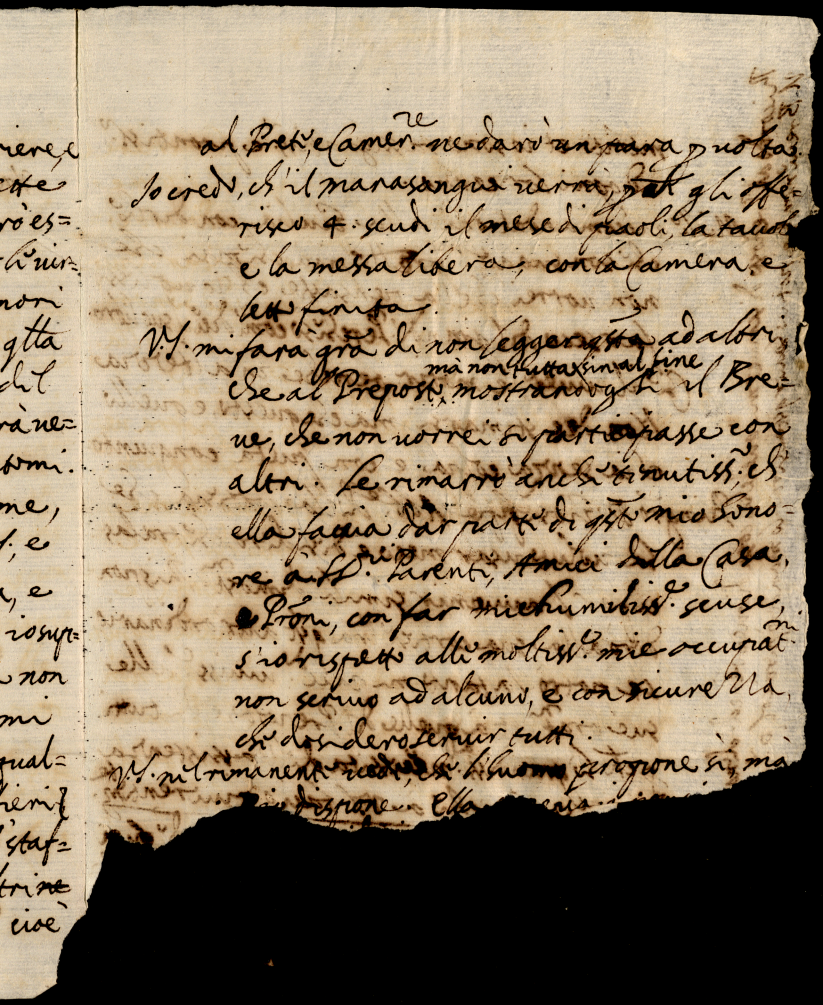 riere, e
ette
rò es=
li vir=
nori
qlla
dil
rà ve=
tomi.
me,
S., e
a, e
io sup=
non
mi
qual=
ieri
staf=
trine
cioè
al Prete, e Camer.re ne darò un para p volta.
Io credo, ch'il marasangui verrà, gli offe=
risco 4. scudi il mese di paoli, la tavola
e la messa libera, con la Camera e
letto finita.
V.S. mi farà gra di non legger qsta ad altri
mà non tutta sin al fine
che al Preposto, mostrandogli il Bre=
ve, che non vorrei si participasse con
altri. Le rimarrò anche tenutiss.o, ch'
ella faccia dar parte di qsto mio hono=
re à SS.ri Parenti, Amici della Casa,
e Proni, con far mie humiliss.e scuse,
s'io rispetto alle moltiss.e mie occupat.ni
non scrivo ad alcuno, e con sicurezza,
che desidero servir tutti.
V.S. nel rimanente vede, che l'huomo propone sì, mà
dispone. Ella